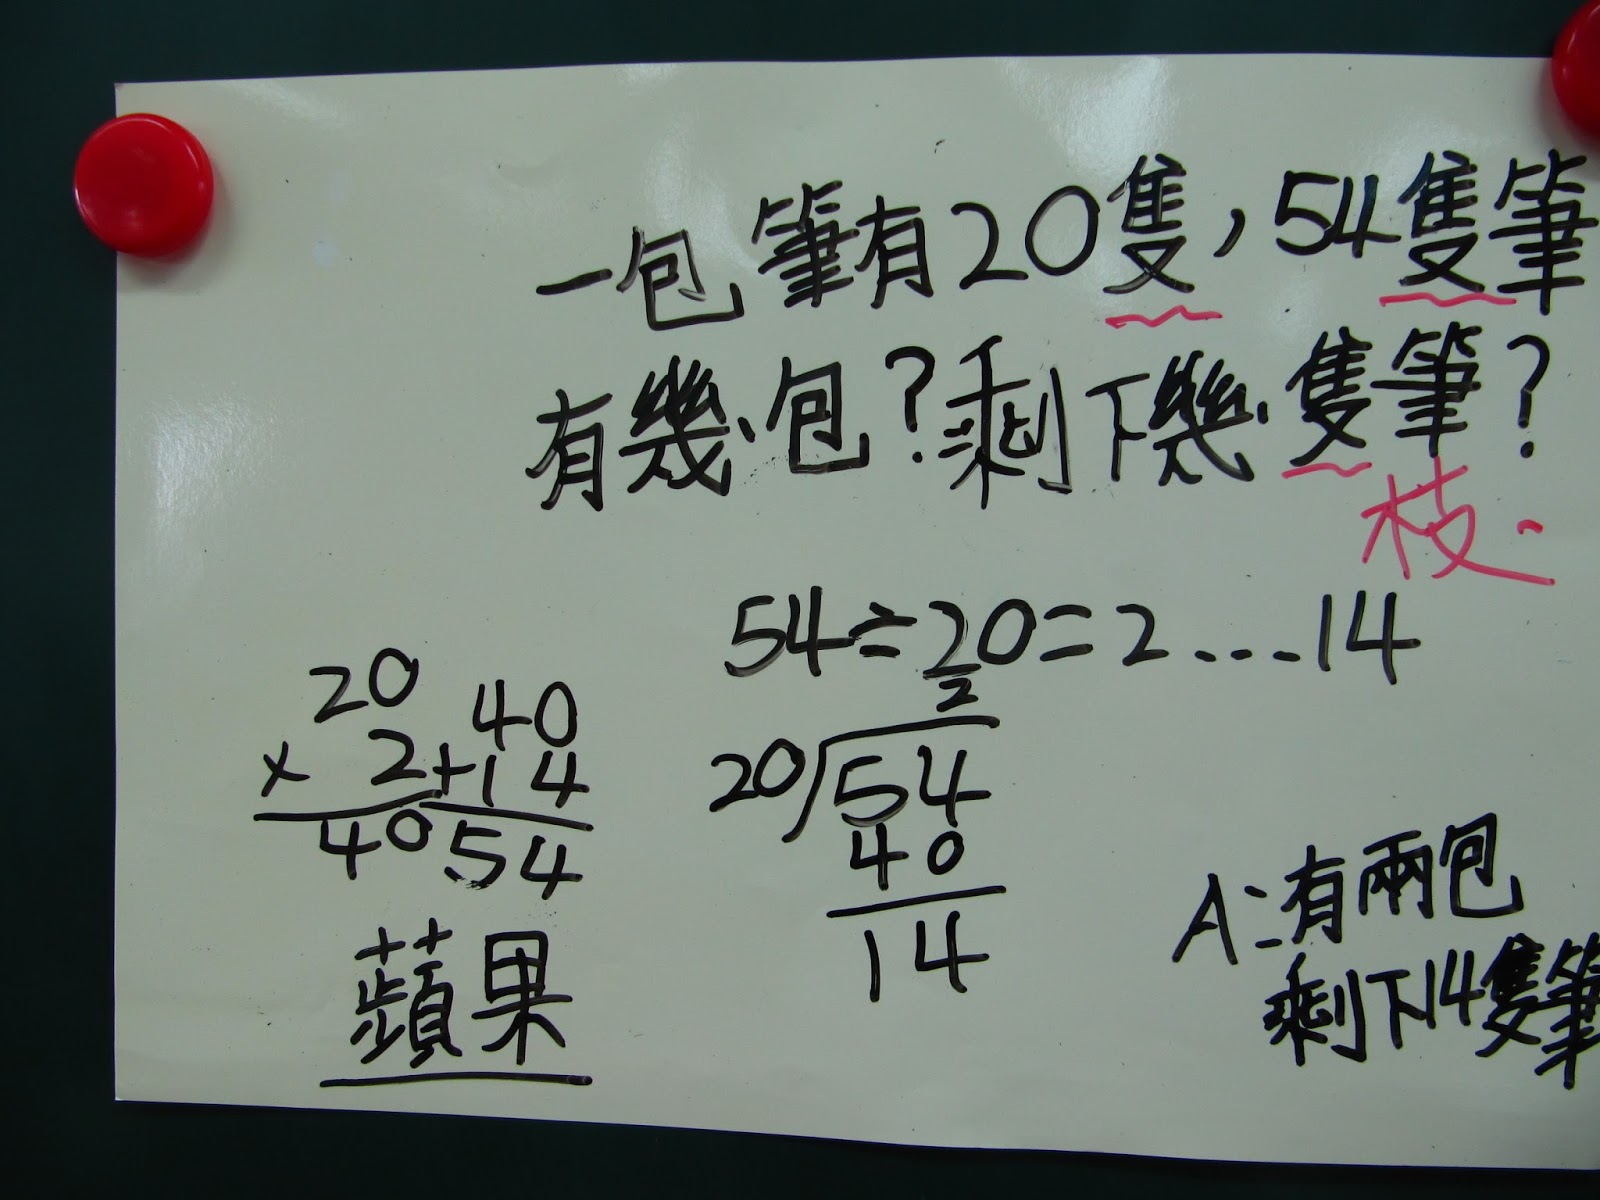 一包筆有20隻,54隻筆
有幾包?剩下幾隻筆?
枝
54÷20=2...14
20
× 2
40
40
+14
54
2
20)54
40
14
A:有兩包
剩下14隻筆
蘋果